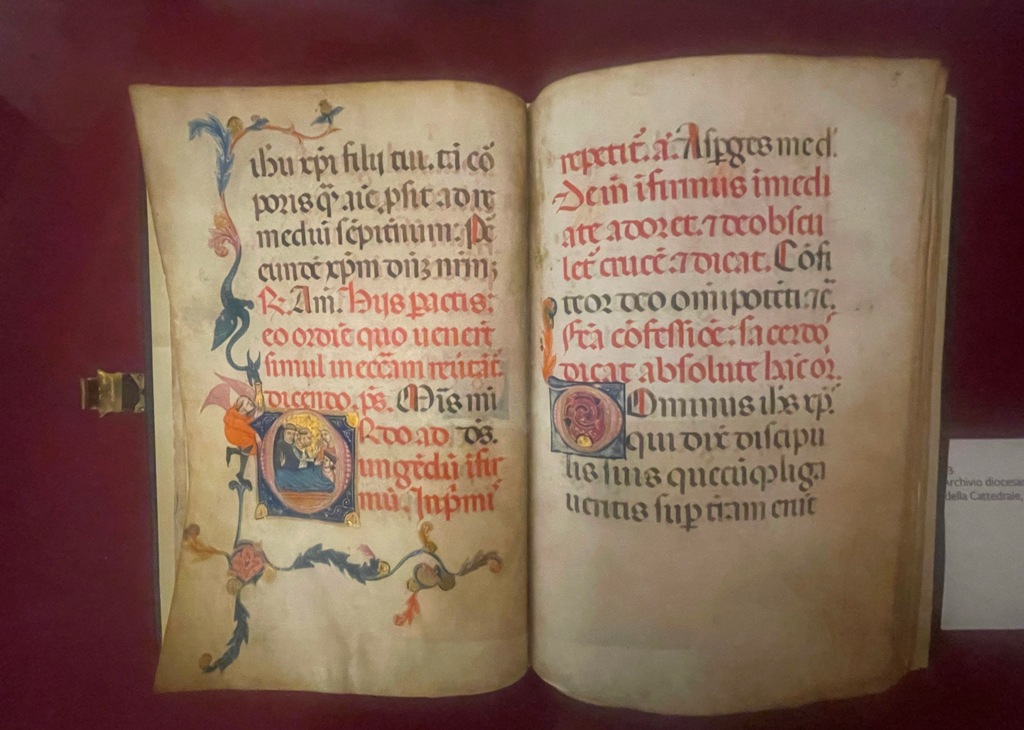 ihu xpi filij tui. ꞇi cō
poris q̄ aīe. psit ad it
mediū sēpitnum: Pe
eundē xpm dn̄z nrm;
R. Am̄. Hijs pactis:
eo ordiē quo uenerīt
simul in eccām
dicendo. ps. Mis m̄i
Ordo ad ōs.
ungēdū ifir
mū. Inp̄mi
repetit̄. a. Asperges med.
Dein īfirmus īmedi
ate adoret. ⁊ deobscu
let̄ crucē. ⁊ dicat. Cōfi
teor deo omīpotēti ⁊c̄.
Fc̄a cōfessiōe: sacerdo
dicat absolutē hāc or.
Dominus ihs xp̄.
qui dix̄ discipu
lis suis quecūq liga
ueritis sup tr̄am erit
3
Archivio diocesan
della Cattedrale,